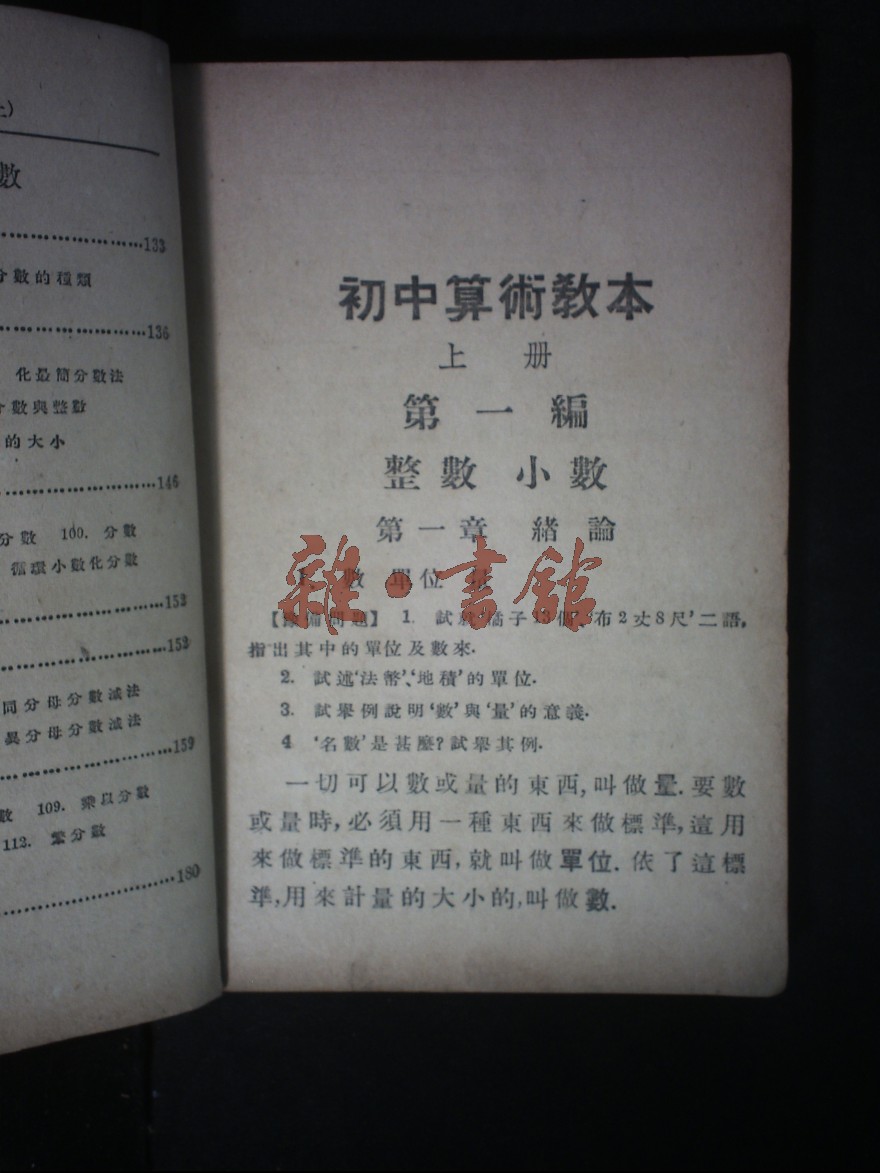 上)
數
……………………133
分數的種類
……………………136
化最簡分數法
分數與整數
的大小
……………………146
分數 100. 分數
循環小數化分數
……………………153
……………………153
同分母分數減法
異分母分數減法
……………………159
數 109. 乘以分數
112. 繁分數
……………………180
初中算術教本
上 册
第一編
整數 小數
第一章 緒論
1. 數 單位 量
【豫備問題】 1. 試就‘橘子13個’‘布2丈8尺’二語,
指出其中的單位及數來.
2. 試述‘法幣’、‘地積’的單位.
3. 試舉例說明‘數’與‘量’的意義.
4 ‘名數’是甚麼?試舉其例.
一切可以數或量的東西,叫做量.要數
或量時,必須用一種東西來做標準,這用
來做標準的東西,就叫做單位.依了這標
準,用來計量的大小的,叫做數.
雜·書館